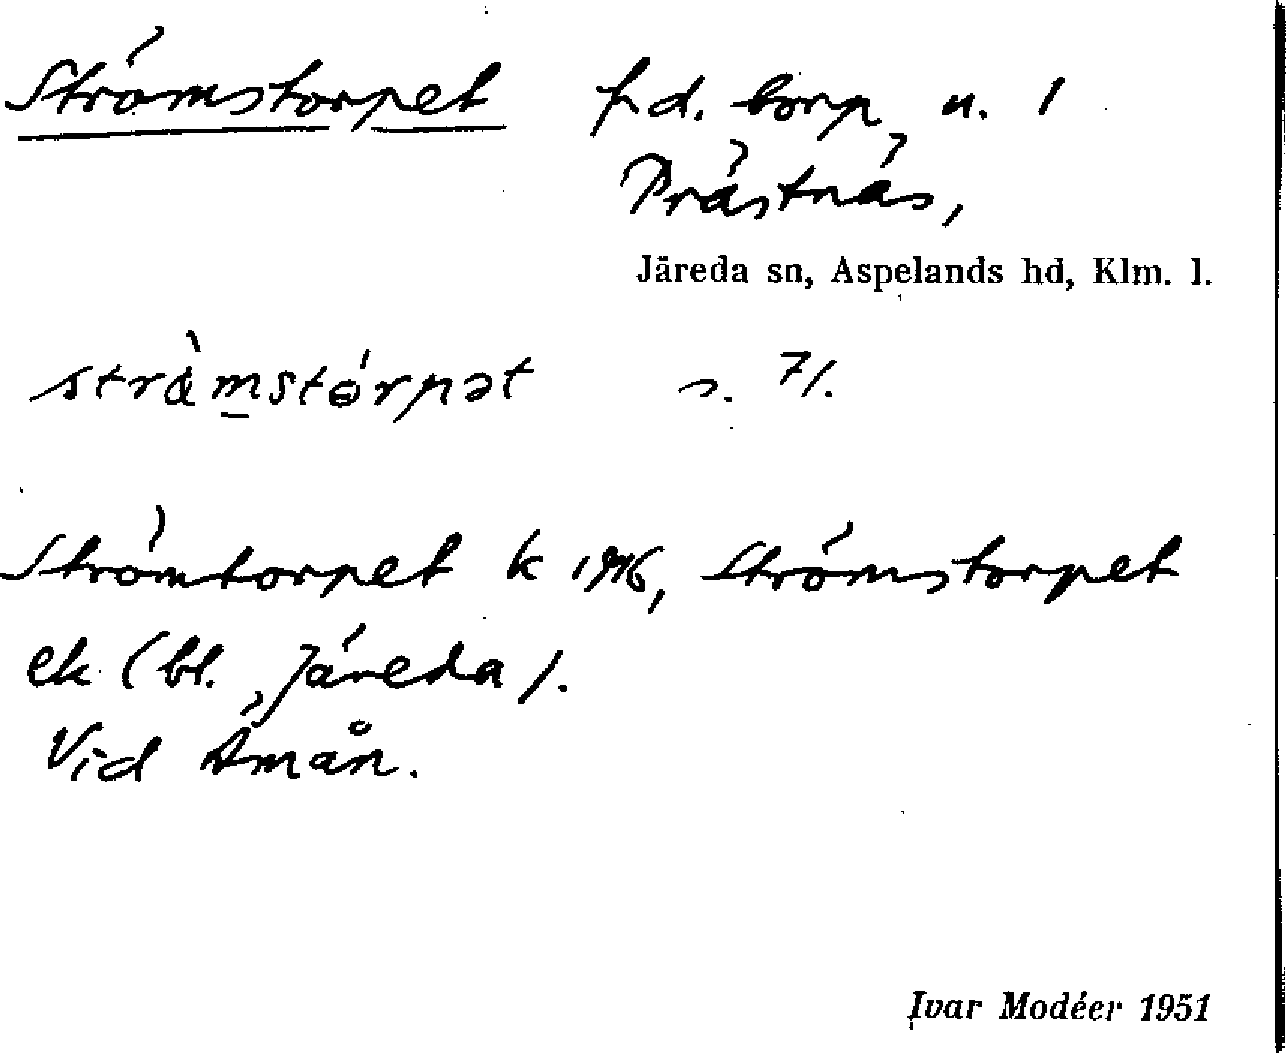 Strömstorpet f.d. torp, u. 1
Prästnäs,
Järeda sn, Aspelands hd, Klm. l.
s. 7/.
Strömtorpet k 1946, Strömstorpet
ek (bl. Järeda).
Vid Åmån.
Ivar Modéer 1951